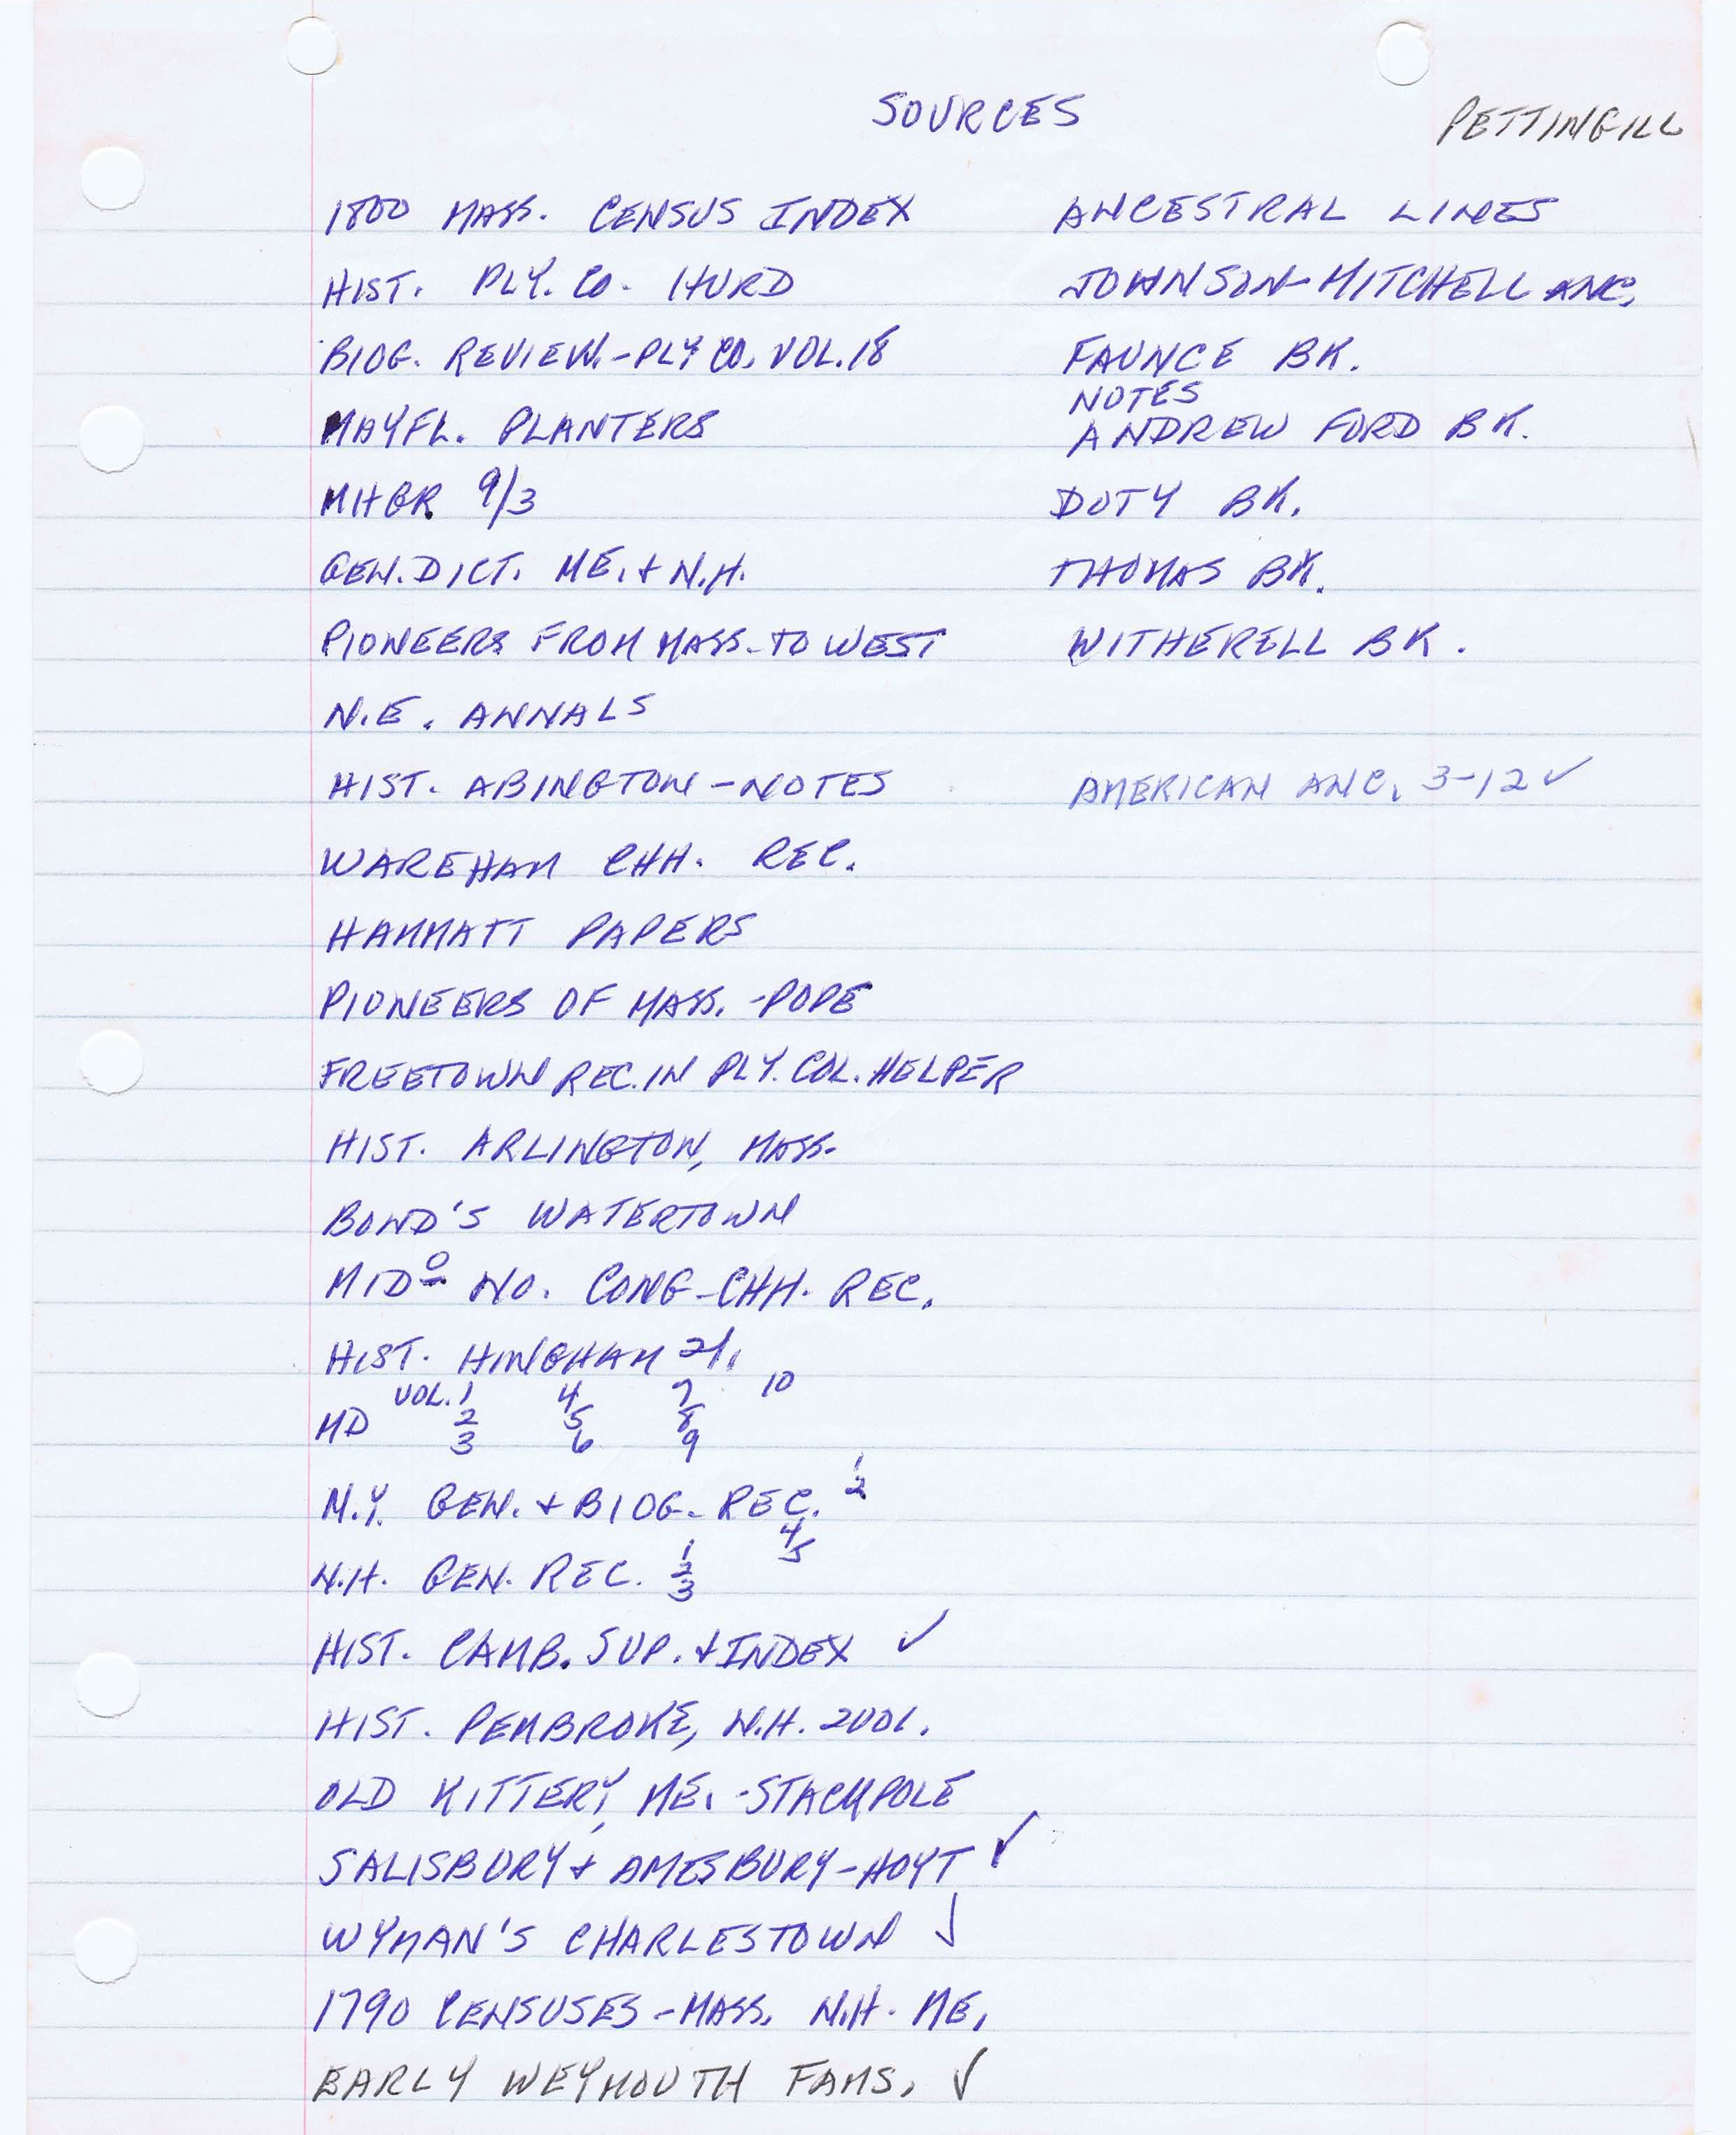 SOURCES
PETTINGILL
1800 MASS. CENSUS INDEX
HIST. PLY. CO. HURD
BIOG. REVIEW.-PLY CO. VOL.18
MAYFL. PLANTERS
MHGR 9/3
GEN.DICT. ME.+N.H.
PIONEERS FROM MASS. TO WEST
N.E. ANNALS
HIST. ABINGTON-NOTES
WAREHAM CHH. REC.
HAMMATT PAPERS
PIONEERS OF MASS.-POPE
FREETOWN REC.IN PLY.COL.HELPER
HIST. ARLINGTON, MASS.
BOND'S WATERTOWN
MIDO NO. CONG-CHH. REC.
HIST. HINGHAM
VOL.1 4 7 10
MD 2 5 8
3 6 9
N.Y. GEN.+BIOG-REC. 1 2
4 5
N.H. GEN. REC. 1 2 3
HIST. CAMB. SUP.+INDEX ✓
HIST. PEMBROKE, N.H. 2VOL.
OLD KITTERY, ME.-STACKPOLE
SALISBURY+AMESBURY-HOYT ✓
WYMAN'S CHARLESTOWN ✓
1790 CENSUSES-MASS. N.H. ME.
EARLY WEYMOUTH FAMS. ✓
ANCESTRAL LINES
JOHNSON-MITCHELL ANC.
FAUNCE BK.
NOTES
ANDREW FORD BK.
DOTY BK.
THOMAS BK.
WITHERELL BK.
AMERICAN ANC. 3-12 ✓